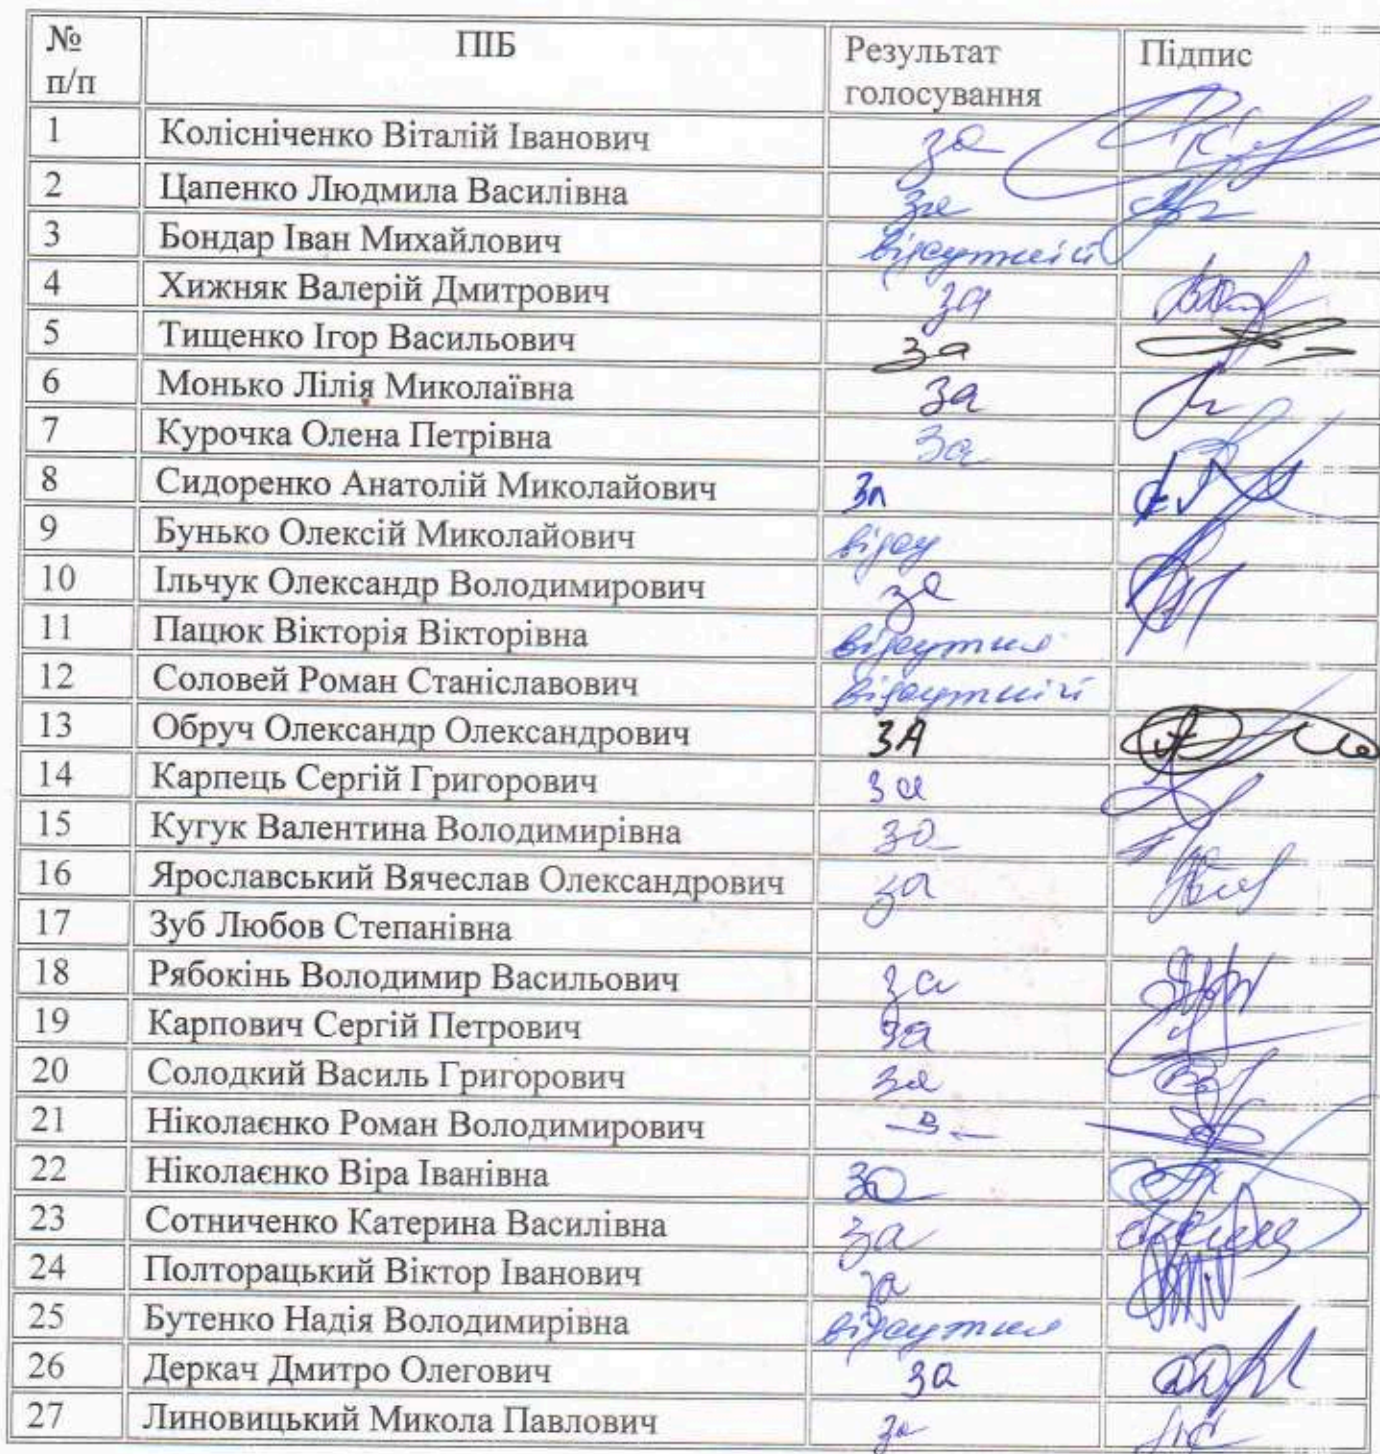 № п/п ПІБ Результат голосування Підпис
1 Колісніченко Віталій Іванович за
2 Цапенко Людмила Василівна за
3 Бондар Іван Михайлович відсутній
4 Хижняк Валерій Дмитрович за
5 Тищенко Ігор Васильович за
6 Монько Лілія Миколаївна за
7 Курочка Олена Петрівна За
8 Сидоренко Анатолій Миколайович За
9 Бунько Олексій Миколайович відсу
10 Ільчук Олександр Володимирович за
11 Пацюк Вікторія Вікторівна відсутня
12 Соловей Роман Станіславович відсутній
13 Обруч Олександр Олександрович ЗА
14 Карпець Сергій Григорович за
15 Кугук Валентина Володимирівна за
16 Ярославський Вячеслав Олександрович за
17 Зуб Любов Степанівна
18 Рябокінь Володимир Васильович за
19 Карпович Сергій Петрович за
20 Солодкий Василь Григорович за
21 Ніколаєнко Роман Володимирович
22 Ніколаєнко Віра Іванівна за
23 Сотниченко Катерина Василівна за
24 Полторацький Віктор Іванович за
25 Бутенко Надія Володимирівна відсутня
26 Деркач Дмитро Олегович за
27 Линовицький Микола Павлович за